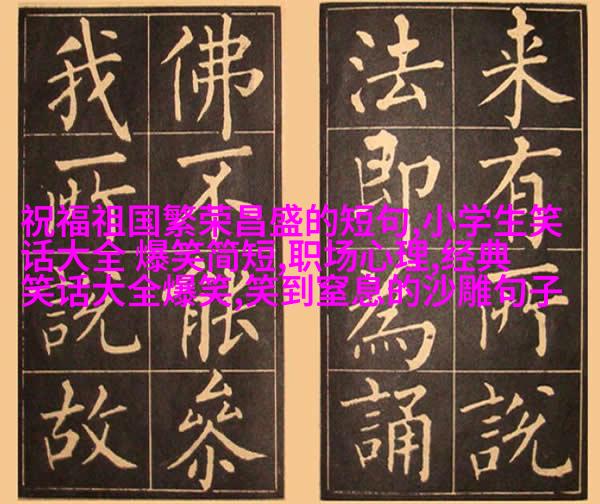 来有所說
法即為誦
佛不能叅
我所說故
祝福祖国繁荣昌盛的短句,小学生笑
话大全 爆笑简短,职场心理,经典
笑话大全爆笑,笑到窒息的沙雕句子